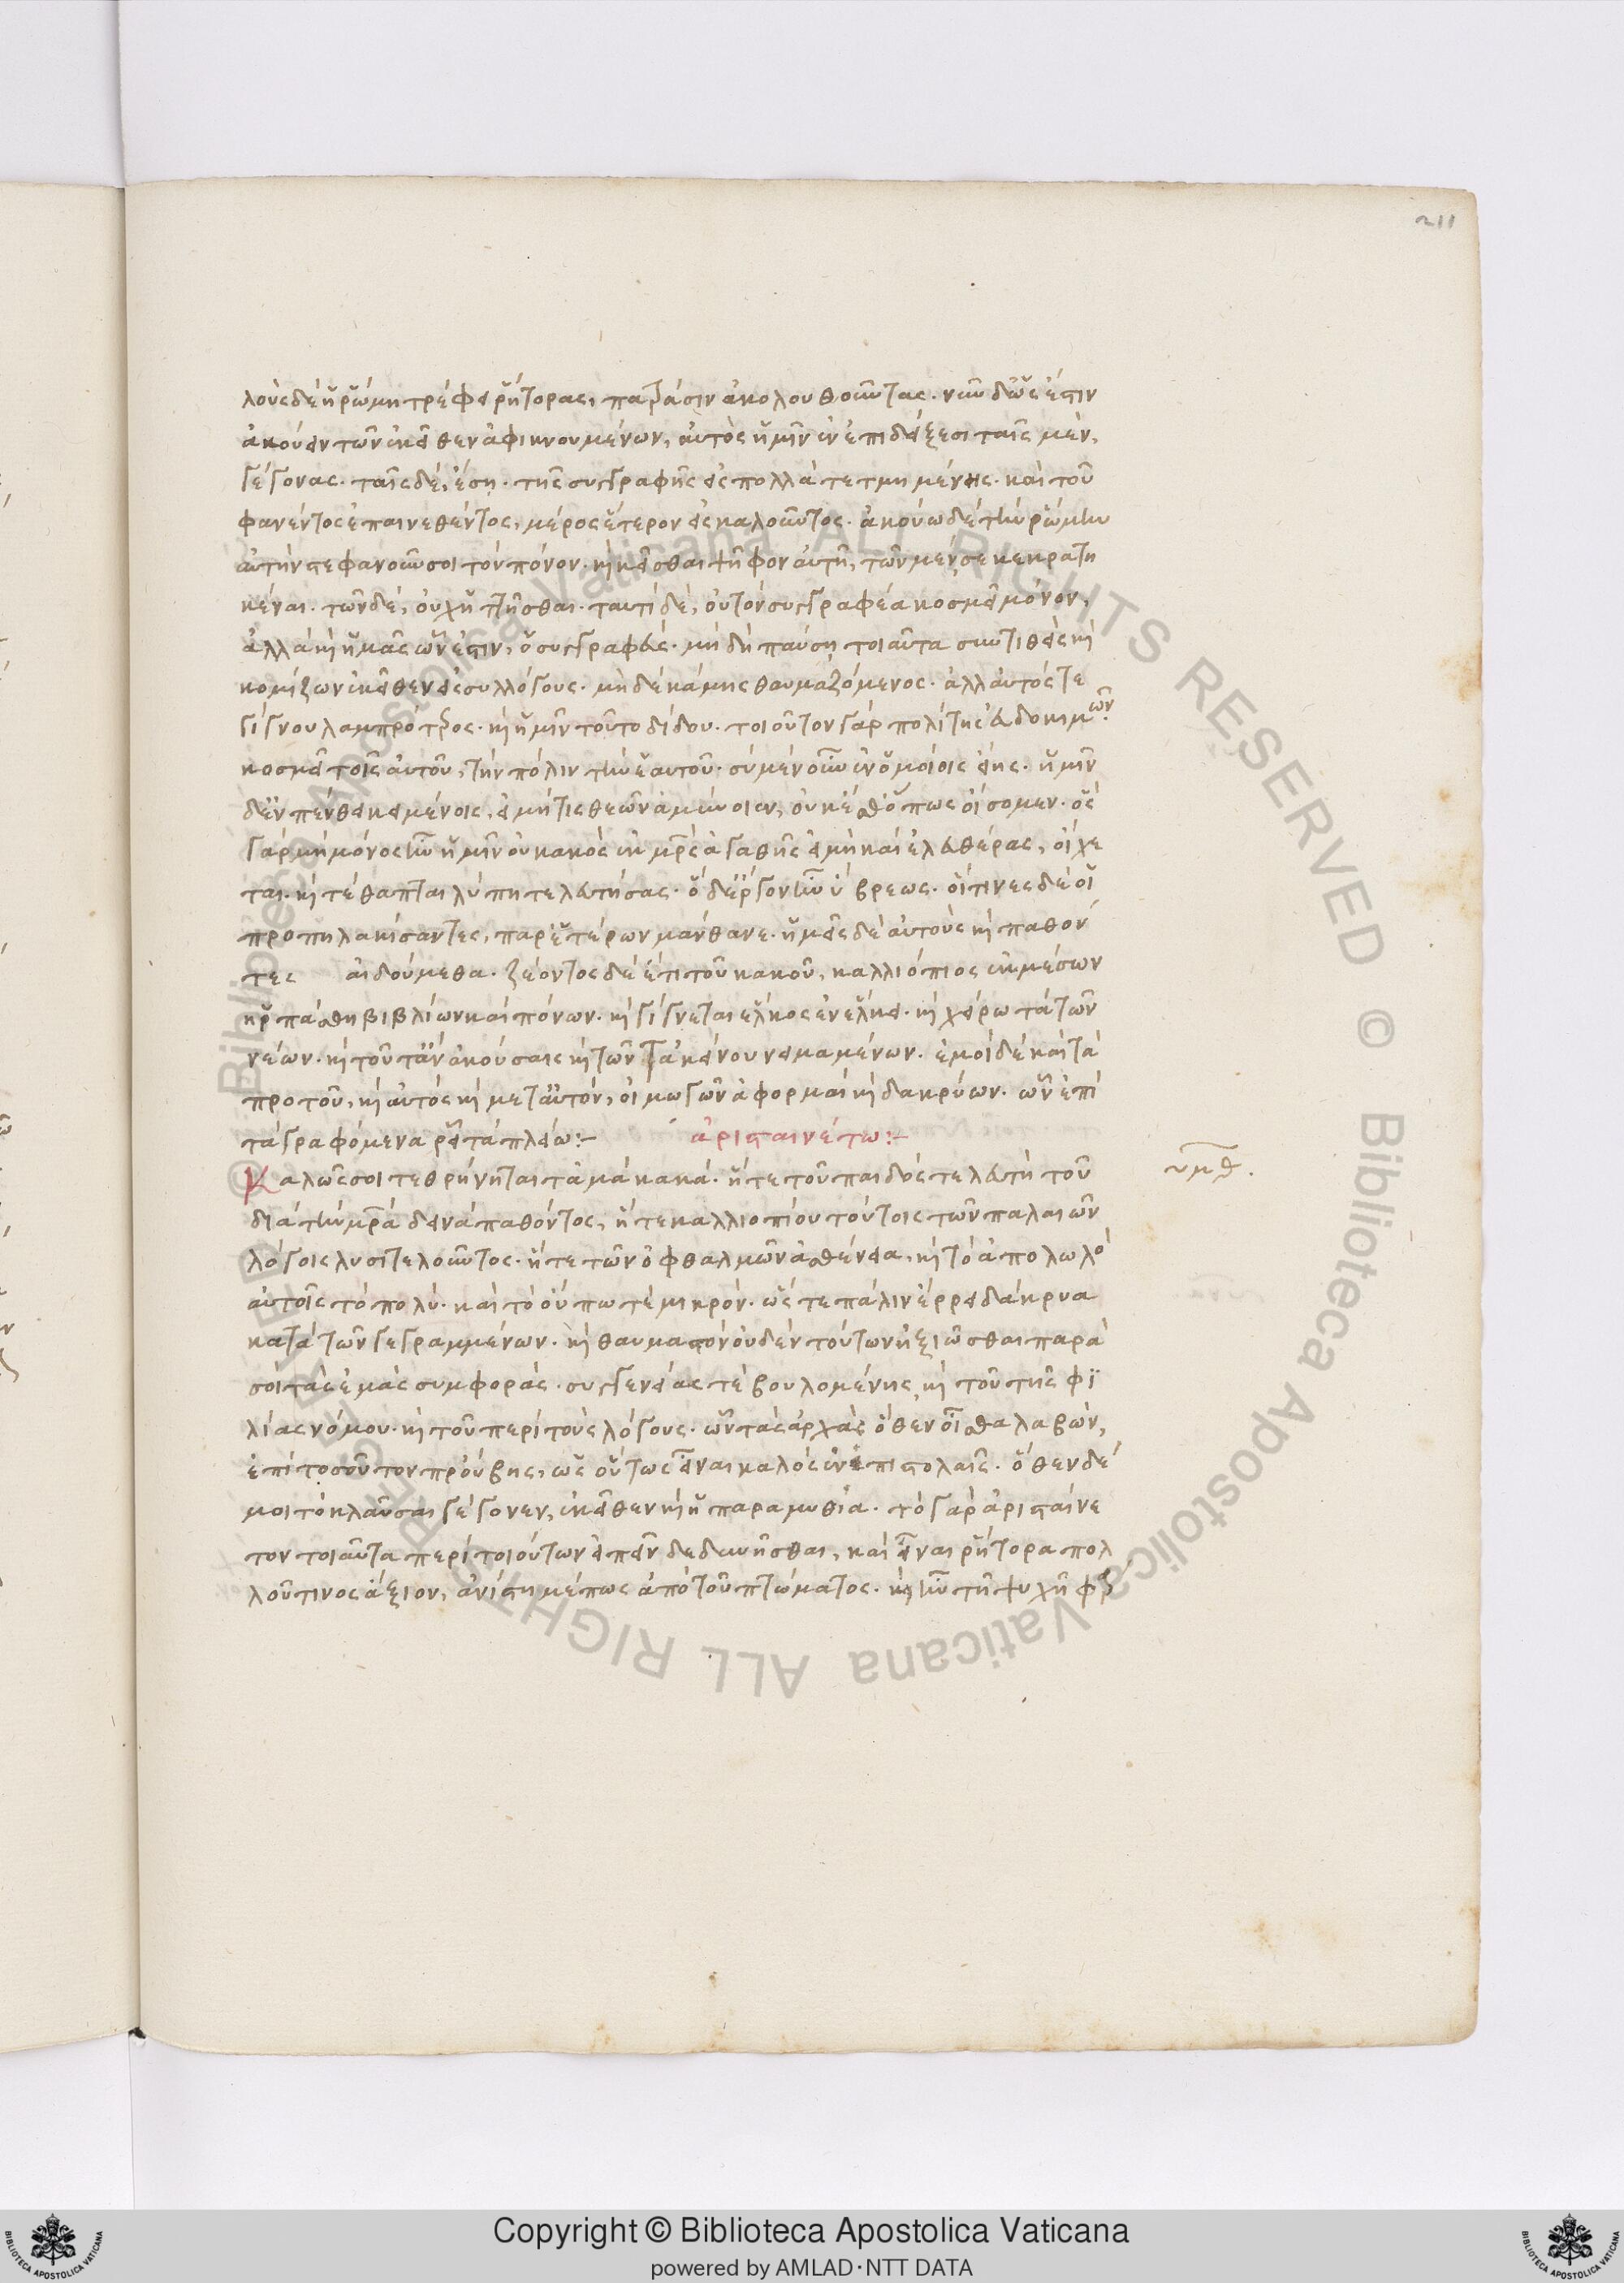 211
λοὺς δὲ ἡ ῥώμη τρέφει ῥήτορας, πατράσιν ἀκολουθοῦντας. νῦν δ' ὡς ἔστιν
ἀκούειν τῶν ἐκεῖθεν ἀφικνουμένων, αὐτὸς ἡμῖν ἐν ἐπιδείξεσι ταῖς μὲν,
γέγονας. ταῖς δὲ, ἔσῃ. τῆς συγγραφῆς εἰς πολλὰ τετμημένης. καὶ τοῦ
φανέντος ἐπαινεθέντος, μέρος ἕτερον εἰσκαλοῦντος. ἀκούω δὲ τὴν ῥώμην
αὐτὴν στεφανοῦν σοι τὸν πόνον. καὶ κεῖσθαι ψῆφον αὐτῇ, τῶν μέν σε κεκρατη
κέναι. τῶν δὲ, οὐχ ἡττῆσθαι. ταυτὶ δὲ, οὐ τὸν συγγραφέα κοσμεῖ μόνον,
ἀλλὰ καὶ ἡμᾶς ὧν ἐστιν, ὁ συγγραφεύς. μὴ δὴ παύσῃ τοιαῦτα συντιθεὶς καὶ
κομίζων ἐκεῖθεν εἰς συλλόγους. μὴ δὲ κάμῃς θαυμαζόμενος. ἀλλ' αὐτός τε
γίγνου λαμπρότερος. καὶ ἡμῖν τοῦτο δίδου. τοιοῦτον γὰρ πολίτης εὐδοκιμῶν.
κοσμεῖ τοῖς αὐτοῦ, τὴν πόλιν τὴν ἑαυτοῦ. σὺ μὲν οὖν ἐν ὁμοίοις εἴης. ἡμῖν
δ' ἐν πένθει κειμένοις, εἰ μή τις θεῶν ἀμύνοιεν, οὐκ ἔσθ' ὅπως οἴσομεν. ὃς
γὰρ μὴ μόνος ἦν ἡμῖν οὐ κακὸς ἐκ μητρὸς ἀγαθῆς εἰ μὴ καὶ ἐλευθέρας, οἴχε
ται. καὶ τέθαπται λύπῃ τελευτήσας. ὃ δ' ἔργον ἦν ὕβρεως. οἵτινες δὲ οἱ
προπηλακίσαντες, παρ' ἑτέρων μάνθανε. ἡμεῖς δὲ αὐτοὺς καὶ παθόν
τες αἰδούμεθα. ζέοντος δὲ ἔτι τοῦ κακοῦ, καλλιόπιος ἐκ μέσων
ἡρπάσθη βιβλίων καὶ πόνων. καὶ γίγνεται ἕλκος ἐν ἕλκει. καὶ χείρω τὰ τῶν
νέων. καὶ τοῦτ' ἂν ἀκούσαις καὶ τῶν τἀκείνου νειμαμένων. ἐμοὶ δὲ καὶ τὰ
πρὸ τοῦ, καὶ αὐτὸς καὶ μετ' αὐτὸν, οἰμωγῶν ἀφορμαὶ καὶ δακρύων. ὧν ἐπὶ
τὰ γραφόμενα ῥεῖ τὰ πλείω:-      ἀρισταινέτω:-
Καλῶς σοι τεθρήνηται τἀμὰ κακά. ἥ τε τοῦ παιδὸς τελευτὴ τοῦ
διὰ τὴν μητέρα δεινὰ παθόντος, ἥ τε καλλιοπίου τούτοις τῶν παλαιῶν
λόγοις λυσιτελοῦντος. ἥ τε τῶν ὀφθαλμῶν ἀσθένεια, καὶ τὸ ἀπολωλὸ
αὐτοῖς τὸ πολύ. καὶ τὸ οὔπω τὲ μικρόν. ὥστε πάλιν ἔρρει δάκρυα
κατὰ τῶν γεγραμμένων. καὶ θαυμαστὸν οὐδὲν τούτων ἠξιῶσθαι παρὰ
σοὶ τὰς ἐμὰς συμφοράς. συγγενείας τὲ βουλομένης, καὶ τοῦ τῆς φι
λίας νόμου. καὶ τοῦ περὶ τοὺς λόγους. ὧν τὰς ἀρχὰς ὅθεν οἶσθα λαβὼν,
ἐπὶ τοσοῦτον προὔβης, ὡς οὕτως εἶναι καλὸς ἐν ἐπιστολαῖς. ὅθεν δέ
μοι τὸ κλαῦσαι γέγονεν, ἐκεῖθεν καὶ ἡ παραμυθία. τὸ γὰρ ἀρισταίνε
τον τοιαῦτα περὶ τοιούτων εἰπεῖν δεδυνῆσθαι, καὶ εἶναι ῥήτορα πολ
λοῦ τινος ἄξιον, ἀνίστη μέ πως ἀπὸ τοῦ πτώματος. καὶ ἦν τῇ ψυχῇ φερ
υμθ.